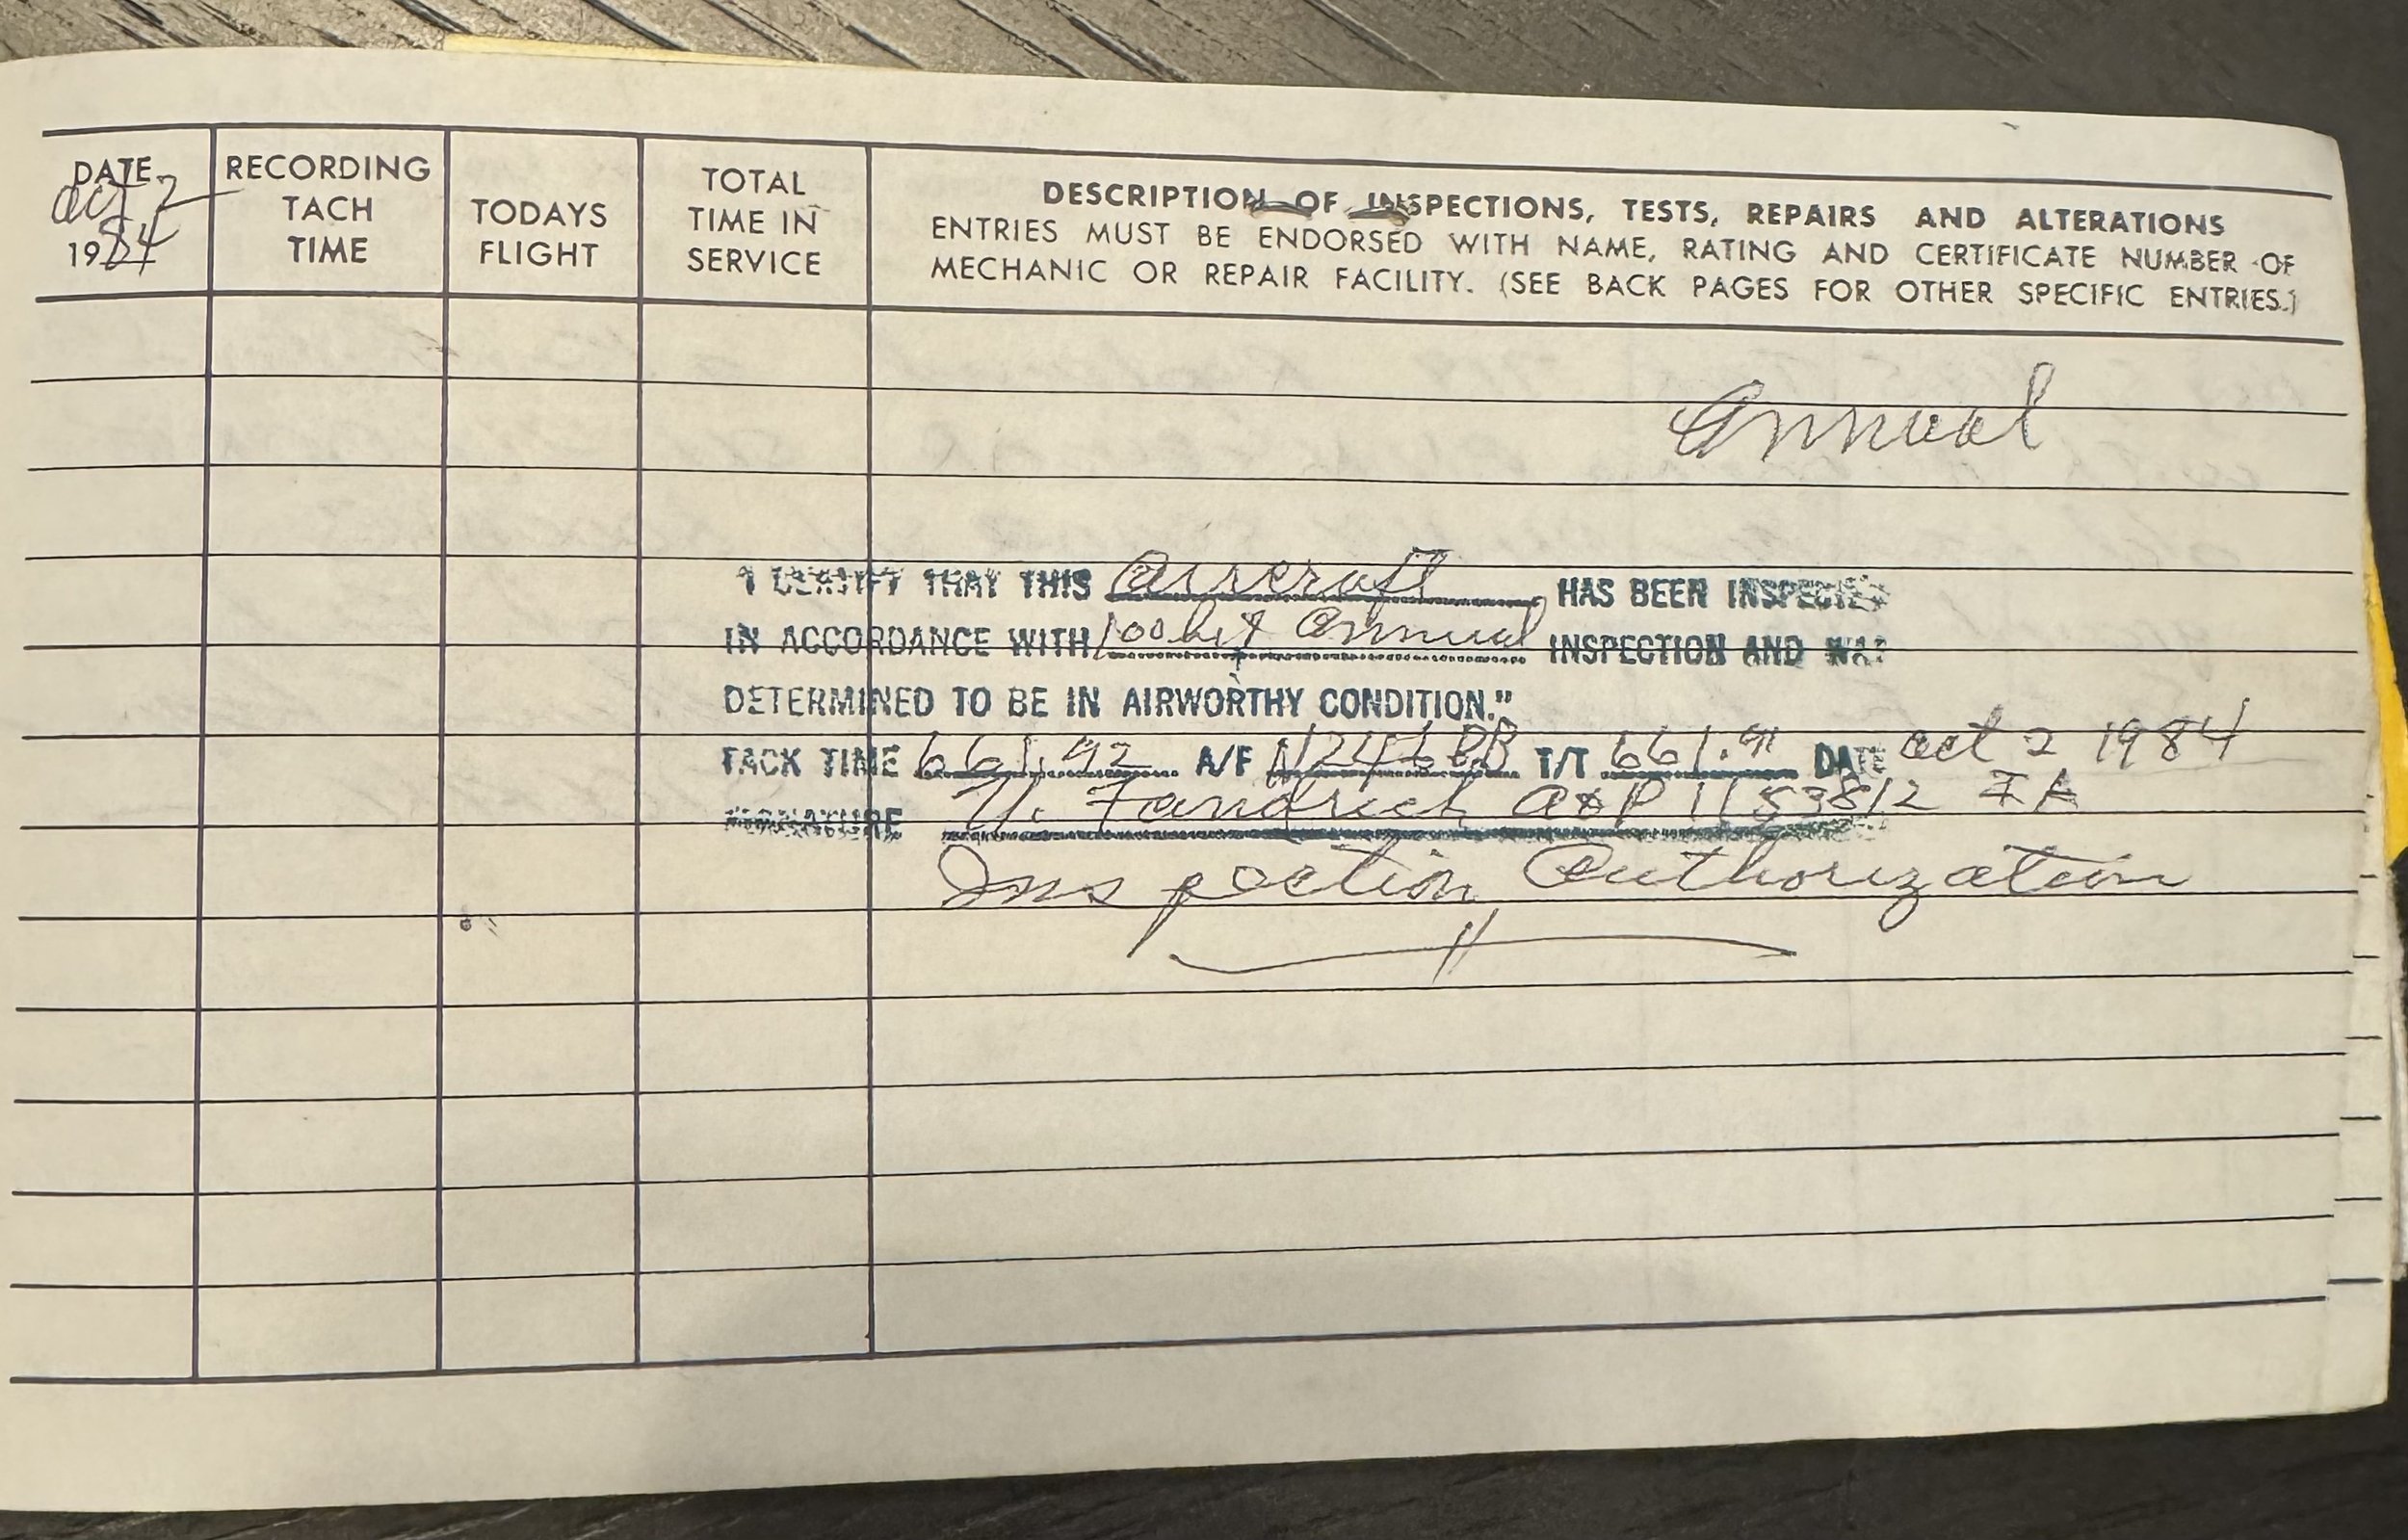 DATE
Oct 2
1984
RECORDING
TACH
TIME
TODAYS
FLIGHT
TOTAL
TIME IN
SERVICE
DESCRIPTION OF INSPECTIONS, TESTS, REPAIRS AND ALTERATIONS
ENTRIES MUST BE ENDORSED WITH NAME, RATING AND CERTIFICATE NUMBER OF
MECHANIC OR REPAIR FACILITY. (SEE BACK PAGES FOR OTHER SPECIFIC ENTRIES.)
Annual
I CERTIFY THAT THIS Aircraft HAS BEEN INSPECTED
IN ACCORDANCE WITH 100 hr & Annual INSPECTION AND WAS
DETERMINED TO BE IN AIRWORTHY CONDITION."
TACK TIME 661.92 A/F T/T 661.91 DATE Oct 2 1984
SIGNATURE Fandrich A&P IA
Inspection Authorization